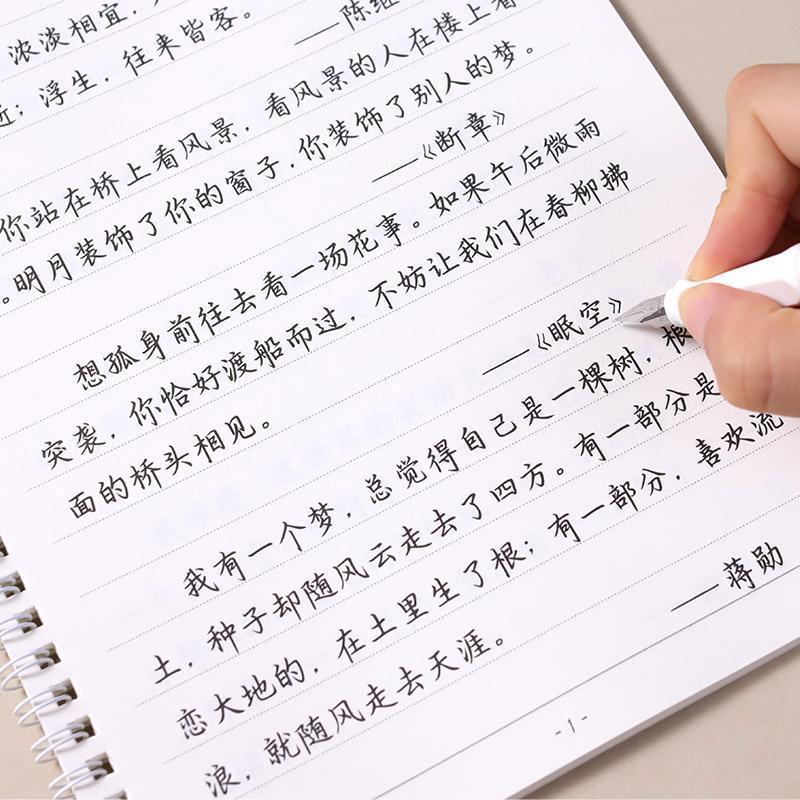 浓淡相宜，
近；浮生，往来皆客。
——陈继
你站在桥上看风景，看风景的人在楼上看
。明月装饰了你的窗子，你装饰了别人的梦。
——《断章》
想孤身前往去看一场花事。如果午后微雨
突袭，你恰好渡船而过，不妨让我们在春柳拂
面的桥头相见。
——《眠空》
我有一个梦，总觉得自己是一棵树，根
土，种子却随风云走去了四方。有一部分是
恋大地的，在土里生了根；有一部分，喜欢流
浪，就随风走去天涯。
——蒋勋
-1-